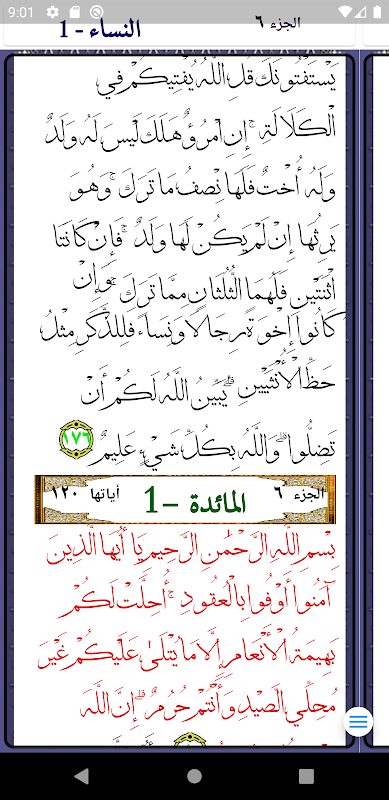 9:01
النساء - 1
الجزء ٦
يَسْتَفْتُونَكَ قُلِ اللَّهُ يُفْتِيكُمْ فِي
الْكَلَالَةِ ۚ إِنِ امْرُؤٌ هَلَكَ لَيْسَ لَهُ وَلَدٌ
وَلَهُ أُخْتٌ فَلَهَا نِصْفُ مَا تَرَكَ ۚ وَهُوَ
يَرِثُهَا إِنْ لَمْ يَكُنْ لَهَا وَلَدٌ ۚ فَإِنْ كَانَتَا
اثْنَتَيْنِ فَلَهُمَا الثُّلُثَانِ مِمَّا تَرَكَ ۚ وَإِنْ
كَانُوا إِخْوَةً رِجَالًا وَنِسَاءً فَلِلذَّكَرِ مِثْلُ
حَظِّ الْأُنْثَيَيْنِ ۗ يُبَيِّنُ اللَّهُ لَكُمْ أَنْ
تَضِلُّوا ۗ وَاللَّهُ بِكُلِّ شَيْءٍ عَلِيمٌ ١٧٦
الجزء ٦ المائدة - 1 أياتها ١٢٠
بِسْمِ اللَّهِ الرَّحْمَٰنِ الرَّحِيمِ يَا أَيُّهَا الَّذِينَ
آمَنُوا أَوْفُوا بِالْعُقُودِ ۚ أُحِلَّتْ لَكُمْ
بَهِيمَةُ الْأَنْعَامِ إِلَّا مَا يُتْلَىٰ عَلَيْكُمْ غَيْرَ
مُحِلِّي الصَّيْدِ وَأَنْتُمْ حُرُمٌ ۗ إِنَّ اللَّهَ